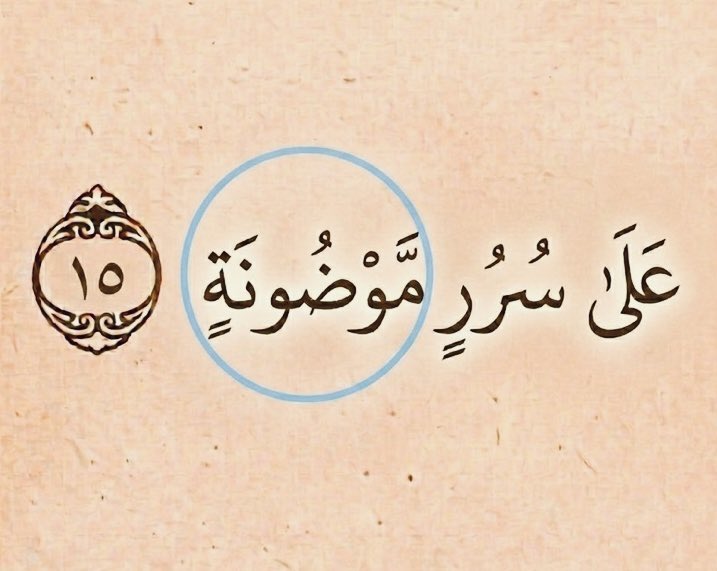 عَلَىٰ سُرُرٍ مَّوْضُونَةٍ ١٥